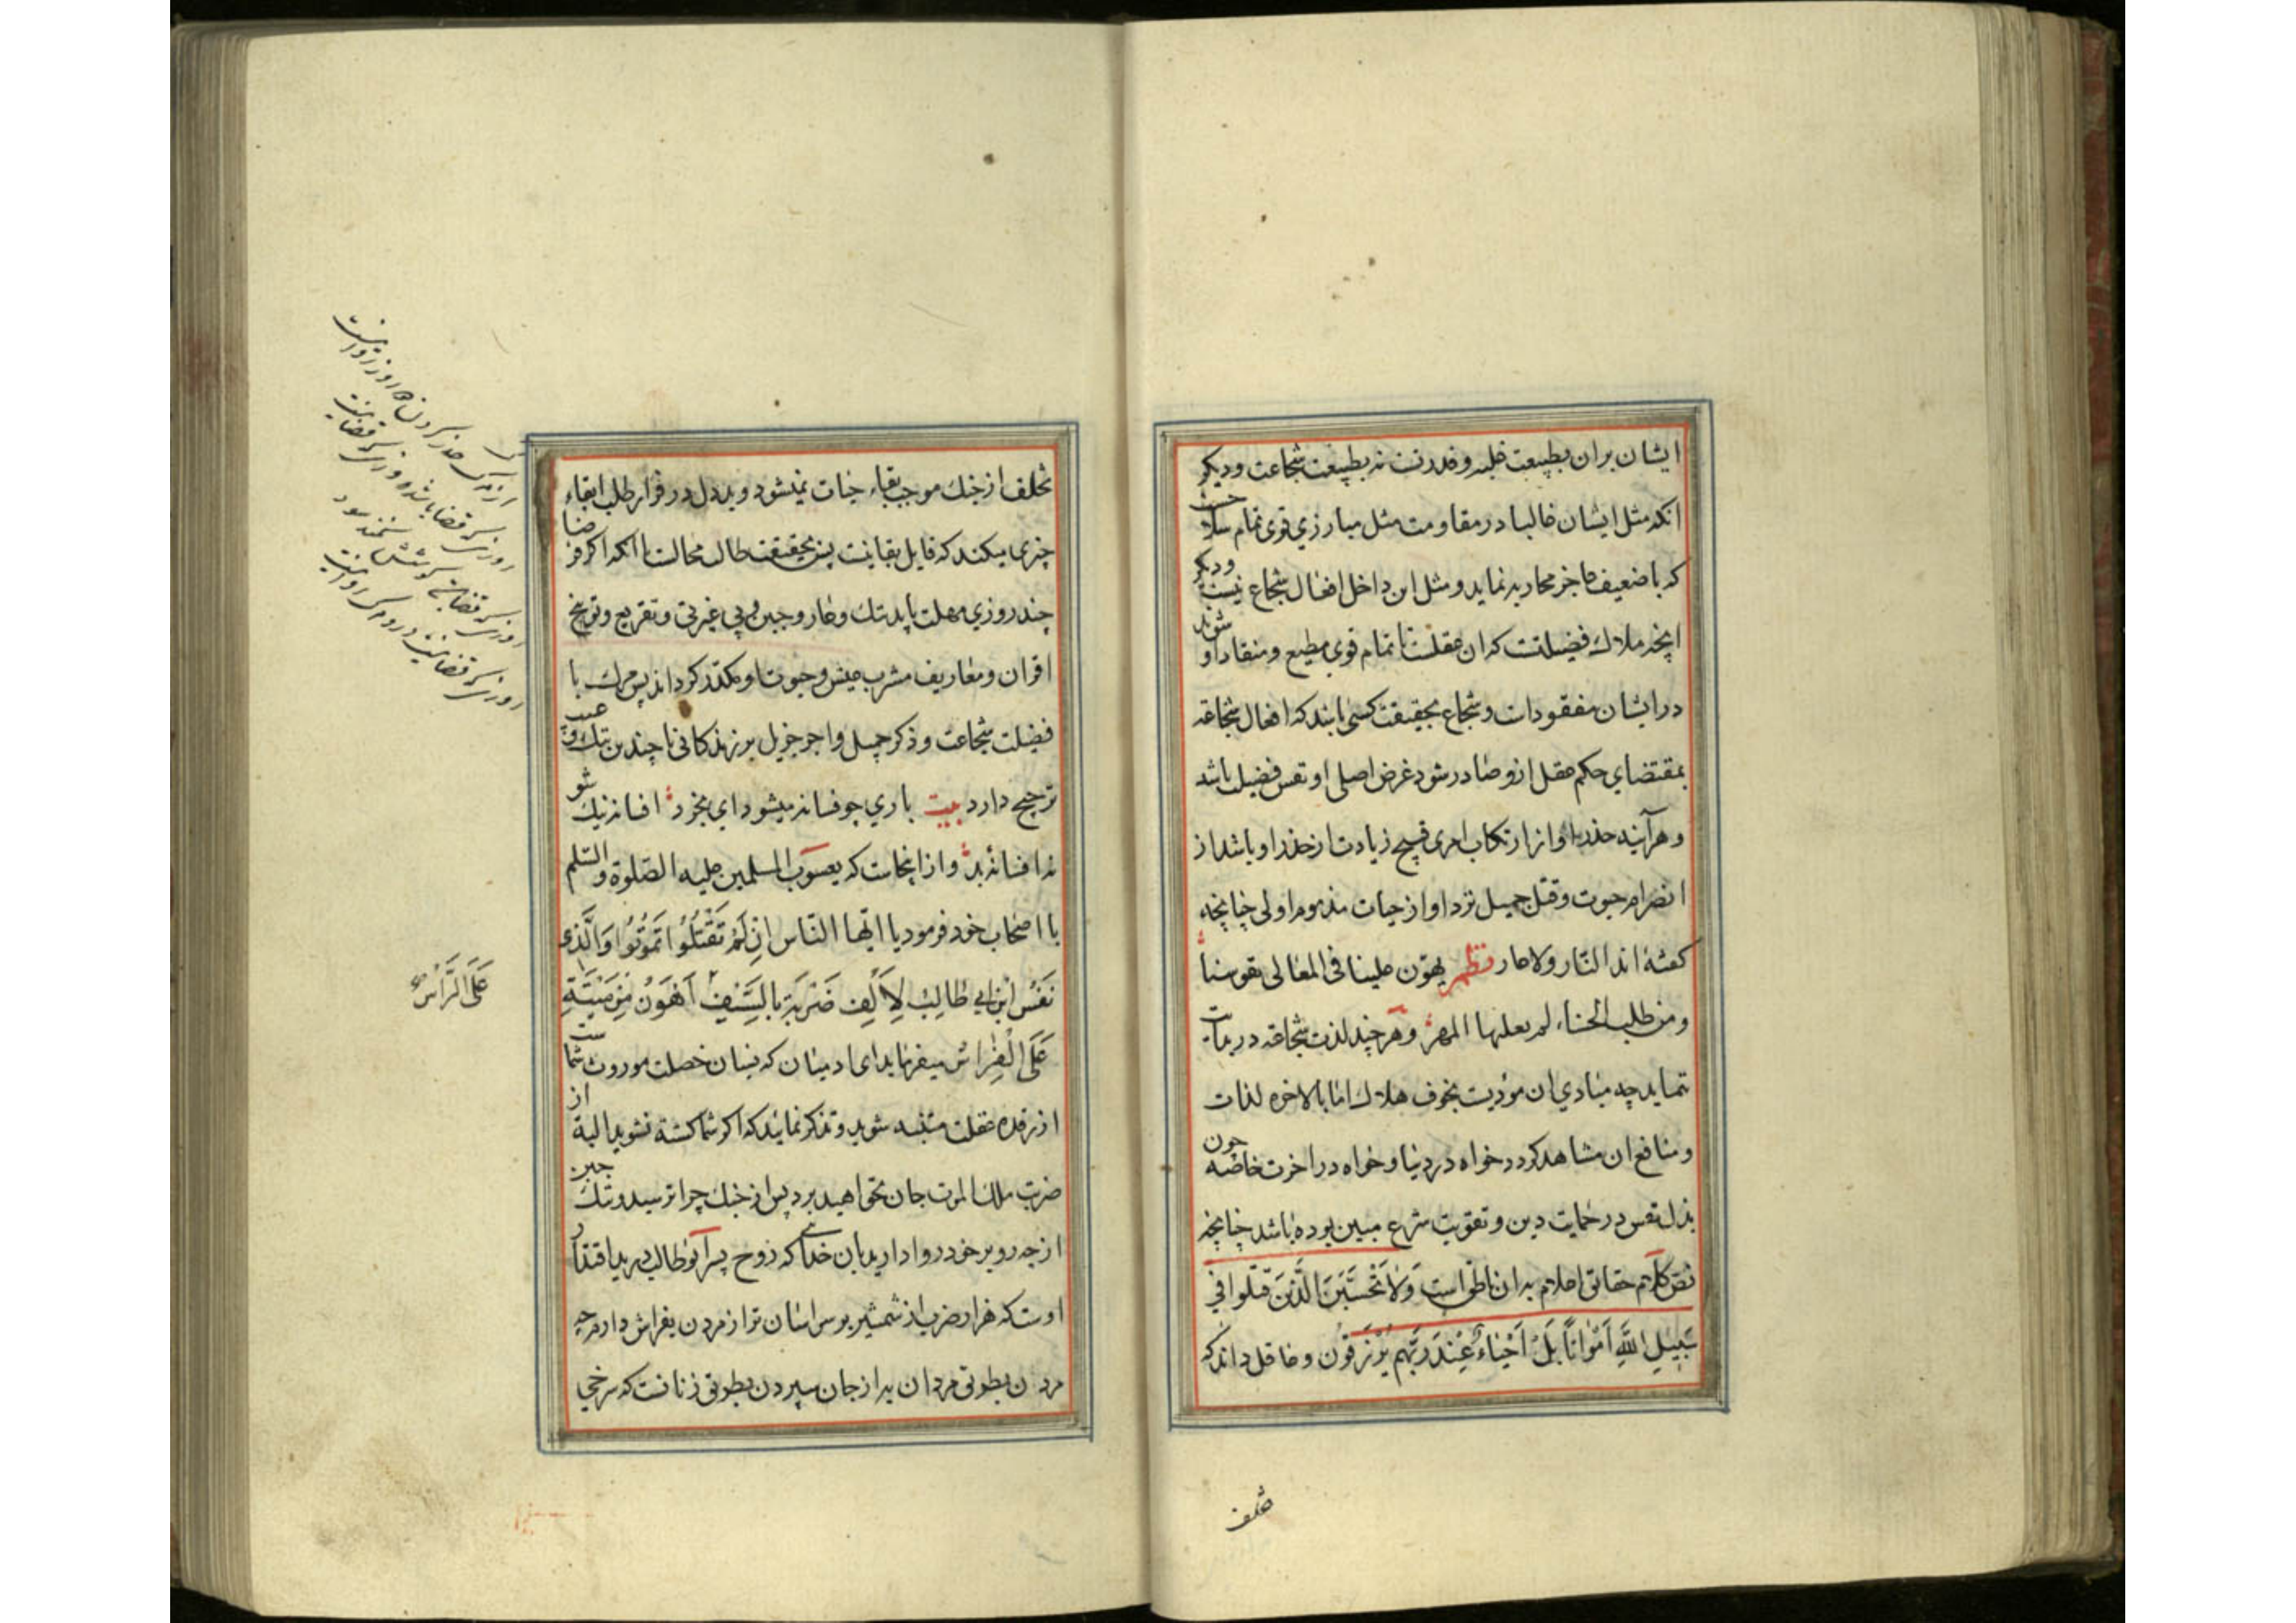 ایشان بران بطبیعت غلبه و قدرتست نه بطبیعت شجاعت و دیگر
انکه مثل ایشان غالبا در مقاومت مثل مبارزی قوی تمام سلاحست
که با ضعیف عاجز محاربه نماید و مثل این داخل افعال شجاع نیست و دیگر
انچه ملاک فضیلتست که ان عقلست تا تمام قوی مطیع و منقاد او شوند
در ایشان مفقودات و شجاع بحقیقت کسی باشد که افعال شجاعة
بمقتضای حکم عقل ازو صادر شود غرض اصلی او نفس فضیلت باشد
و هرآینه حذر او از ارتکاب امری قبیح زیادت از حذر او باشد از
انصرام حیوت و قتل جمیل نزد او از حیات مذموم اولی چنانچه
کفته اند النار ولا العار نظم یهون علینا فی المعالی نفوسنا
ومن طلب الحسناء لم یغلها المهر و هرچند لذت شجاعة در بدایت
ننماید چه مبادی ان مؤدیست بخوف هلاک اما بالاخره لذات
و منافع ان مشاهد کردد خواه در دنیا و خواه در اخرت خاصه چون
بذل نفس در حمایت دین و تقویت شرع مبین بوده باشد چنانچه
نص کلام حقائق اعلام بدان ناطق است وَلاَ تَحْسَبَنَّ الَّذِینَ قُتِلُوا فی
سَبِیلِ اللَّهِ اَمْوَاتًا بَلْ اَحْیَاءٌ عِنْدَ رَبِّهِم یُرْزَقُونَ و عاقل داند که
تخلف
تخلف از جنک موجب بقاء حیات نمیشود و بددل در فرار طلب ابقاء
چیزی میکند که قابل بقا نیست پس بحقیقت طالب محالست با انکه اکر فرضا
چند روزی مهلت یابد ننک و عار و جبن و بی غیرتی و تقریع و توبیخ
اقران و معاریف مشرب عیش و حیوت او مکدر کرداند پس مرک با
فضیلت شجاعت و ذکر جمیل و اجر جزیل بر زندکانی با چندین ننک و عیب
ترجیح دارد بیت باری چو فسانه میشوی ای بخرد افسانه نیک شو
نه افسانه بد و از اینجاست که یعسوب المسلمین علیه الصلوة والسلم
با اصحاب خود فرمود یا ایها النّاس اِنْ لَمْ تُقْتَلُوا تَمُوتُوا وَالَّذِی
نَفْسُ ابْنِ ابی طَالِبْ لَاَلْفُ ضَرْبَةٍ بِالسَّیْفِ اَهْوَنُ مِنْ مِیْتَةٍ
عَلَی الْفِرَاشِ میفرماید ای ادمیان که نسیان خصلت موروث شماست
از رقده غفلت متنبه شوید و تذکر نمائید که اکر شما کشته نشوید البة از
ضربت ملک الموت جان نخواهید برد پس از جنک چرا ترسید و ننک جبن
از چه رو بر خود روا دارید بان خدای که روح پسر ابو طالب در ید اقتدار
اوست که هزار ضربت از شمشیر بر سر اسان تر از مردن بفراش دارم چه
مردن بطوق مردان به از جان سپردن بطوق زنانست که سرخی
از مرک حذر کردن دو روز روا نیست
روزی که قضا باشد و روزی که قضا نیست
روزی که قضا باشد کوشش نکند سود
روزی که قضا نیست درو مرک روا نیست
عَلَی الرَّأْسِ